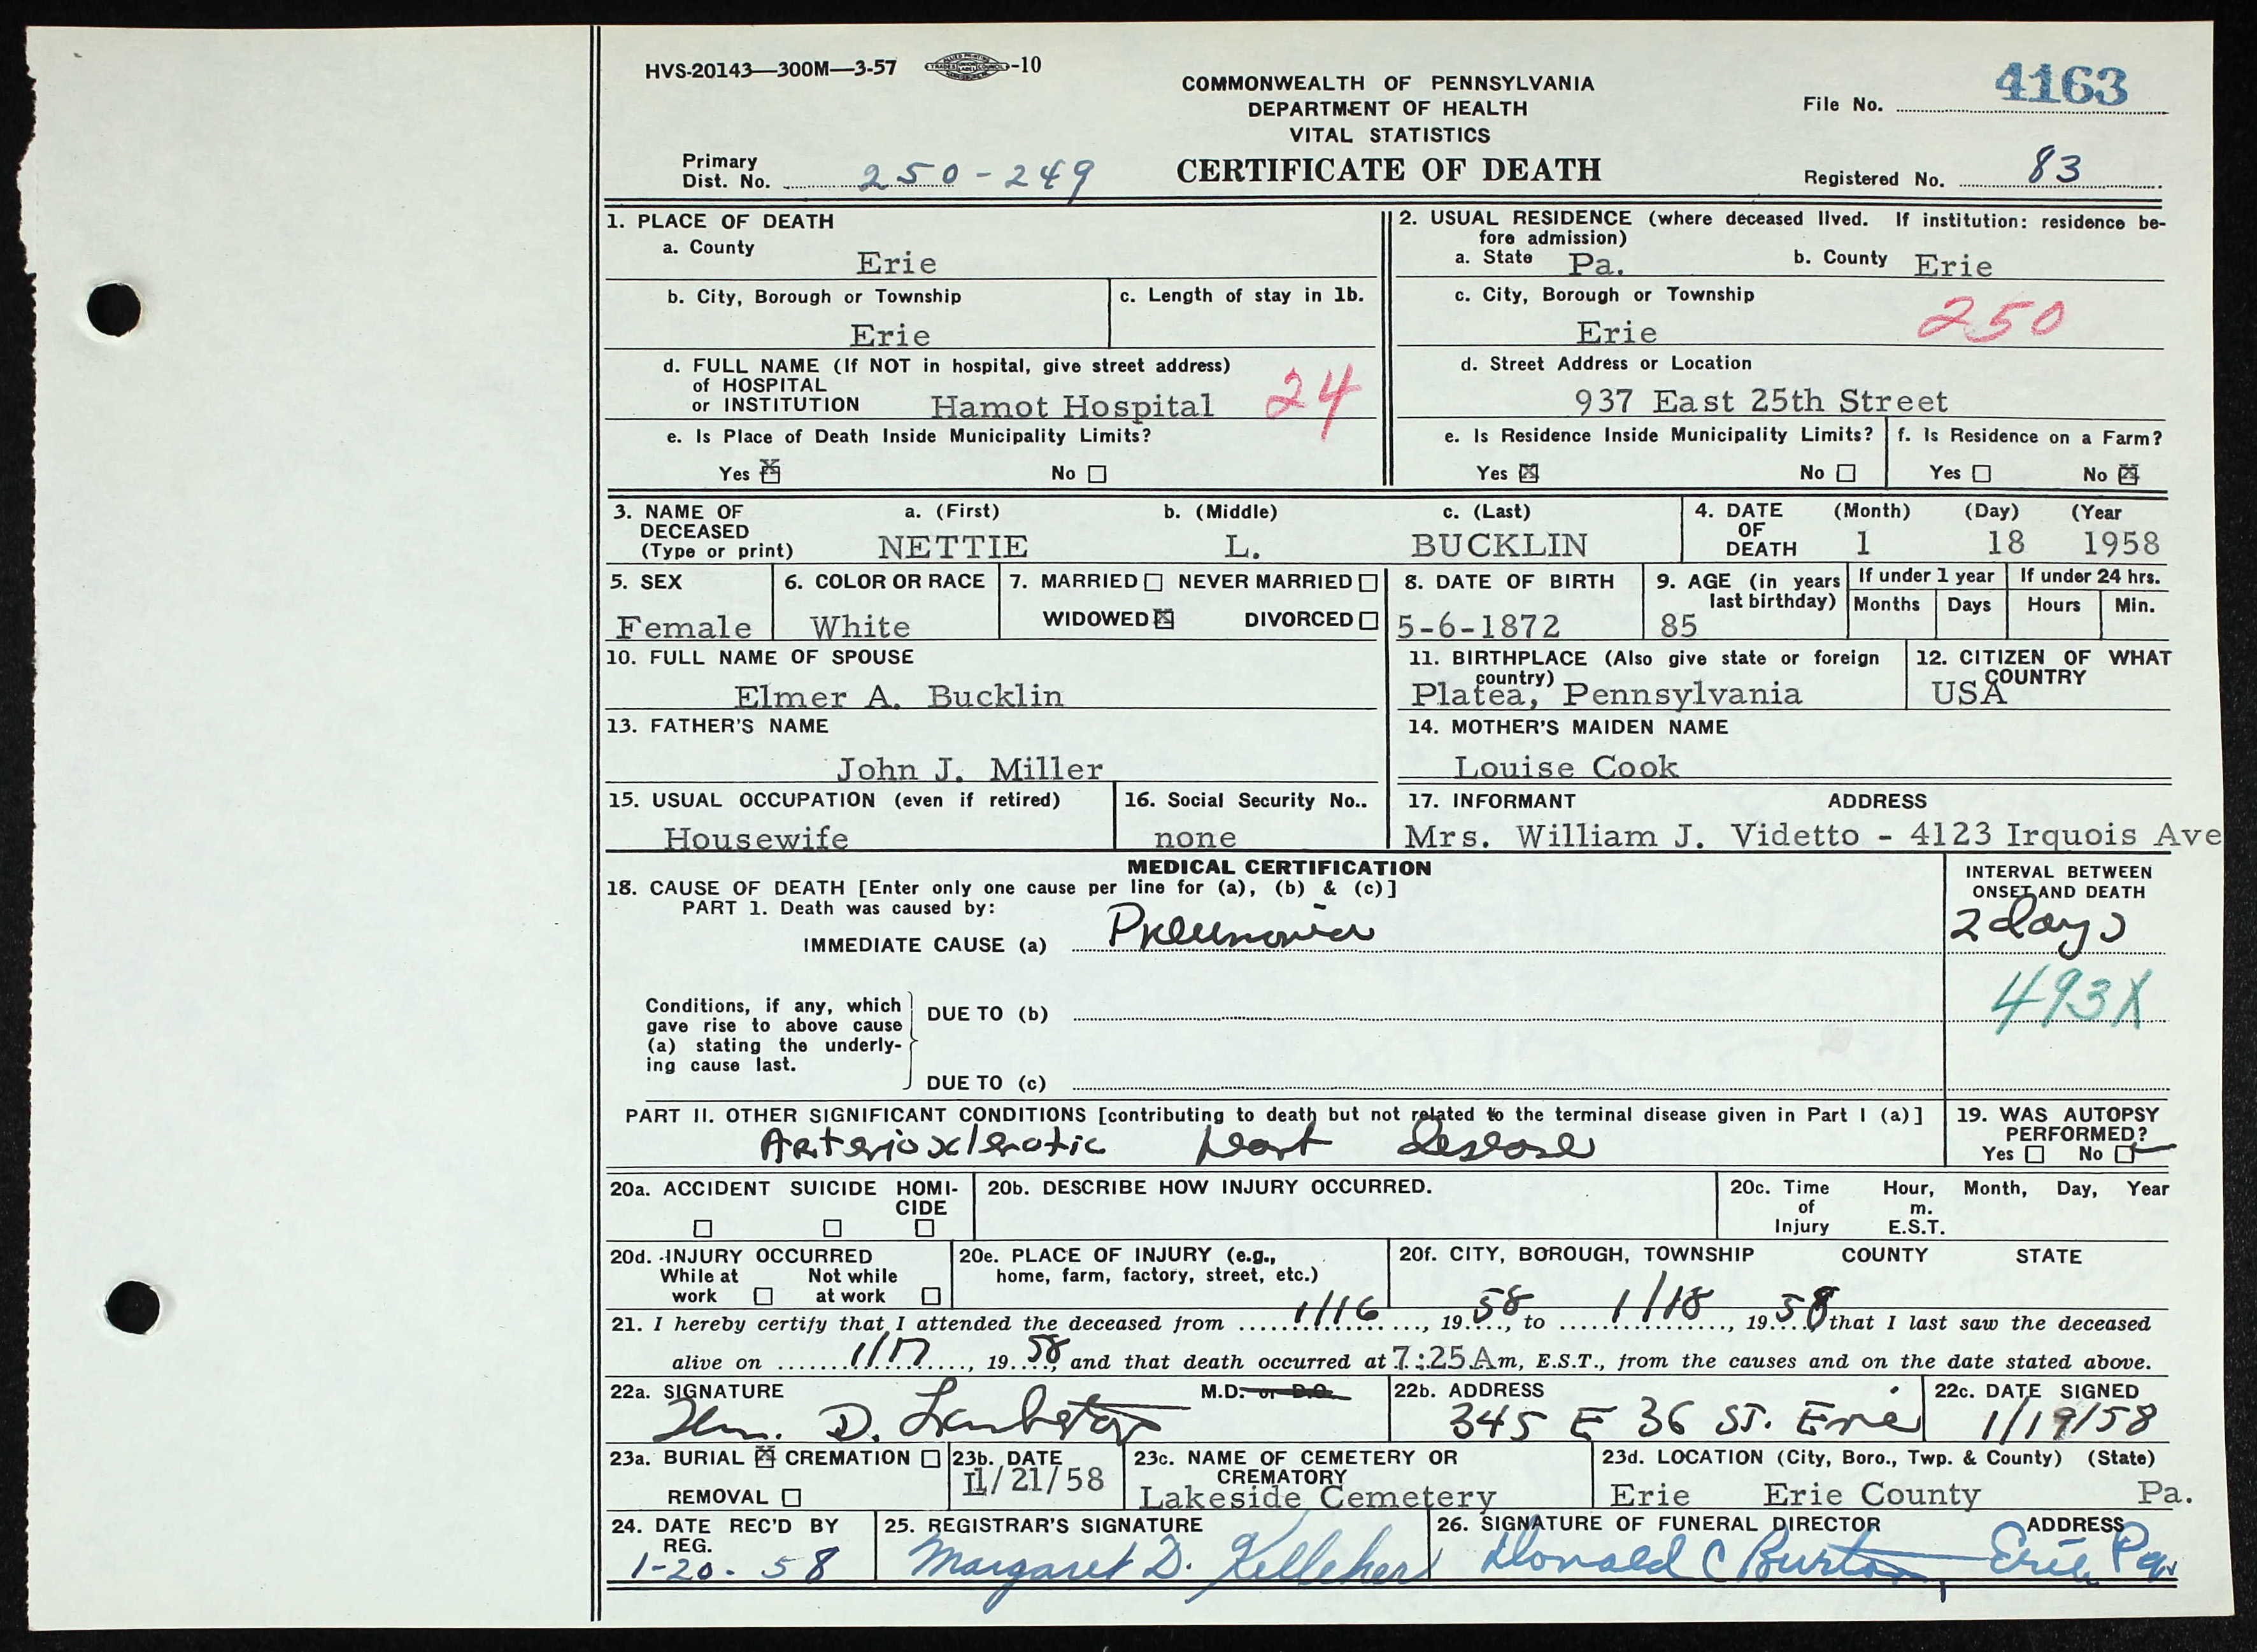 HVS-20143—300M—3-57 -10
COMMONWEALTH OF PENNSYLVANIA
DEPARTMENT OF HEALTH
VITAL STATISTICS
CERTIFICATE OF DEATH
File No. 4163
Primary
Dist. No. 250-249
Registered No. 83
1. PLACE OF DEATH
a. County
Erie
b. City, Borough or Township
Erie
c. Length of stay in 1b.
d. FULL NAME (If NOT in hospital, give street address)
of HOSPITAL
or INSTITUTION Hamot Hospital 24
e. Is Place of Death Inside Municipality Limits?
Yes ☒ No ☐
2. USUAL RESIDENCE (where deceased lived. If institution: residence be-
fore admission)
a. State Pa. b. County Erie
c. City, Borough or Township
Erie 250
d. Street Address or Location
937 East 25th Street
e. Is Residence Inside Municipality Limits?
Yes ☒ No ☐
f. Is Residence on a Farm?
Yes ☐ No ☒
3. NAME OF
DECEASED
(Type or print)
a. (First) b. (Middle) c. (Last)
NETTIE L. BUCKLIN
4. DATE
OF
DEATH
(Month) (Day) (Year
1 18 1958
5. SEX
Female
6. COLOR OR RACE
White
7. MARRIED ☐ NEVER MARRIED ☐
WIDOWED ☒ DIVORCED ☐
8. DATE OF BIRTH
5-6-1872
9. AGE (in years
last birthday)
85
If under 1 year
Months Days
If under 24 hrs.
Hours Min.
10. FULL NAME OF SPOUSE
Elmer A. Bucklin
11. BIRTHPLACE (Also give state or foreign
country)
Platea, Pennsylvania
12. CITIZEN OF WHAT
COUNTRY
USA
13. FATHER'S NAME
John J. Miller
14. MOTHER'S MAIDEN NAME
Louise Cook
15. USUAL OCCUPATION (even if retired)
Housewife
16. Social Security No..
none
17. INFORMANT ADDRESS
Mrs. William J. Videtto - 4123 Irquois Ave
MEDICAL CERTIFICATION
18. CAUSE OF DEATH [Enter only one cause per line for (a), (b) & (c)]
PART 1. Death was caused by:
IMMEDIATE CAUSE (a) Pneumonia
INTERVAL BETWEEN
ONSET AND DEATH
2 days
493X
Conditions, if any, which
gave rise to above cause
(a) stating the underly-
ing cause last.
DUE TO (b)
DUE TO (c)
PART II. OTHER SIGNIFICANT CONDITIONS [contributing to death but not related to the terminal disease given in Part I (a)]
Arteriosclerotic heart disease
19. WAS AUTOPSY
PERFORMED?
Yes ☐ No ☑
20a. ACCIDENT SUICIDE HOMI-
CIDE
☐ ☐ ☐
20b. DESCRIBE HOW INJURY OCCURRED.
20c. Time
of
Injury
Hour, Month, Day, Year
m.
E.S.T.
20d. INJURY OCCURRED
While at Not while
work ☐ at work ☐
20e. PLACE OF INJURY (e.g.,
home, farm, factory, street, etc.)
20f. CITY, BOROUGH, TOWNSHIP COUNTY STATE
21. I hereby certify that I attended the deceased from 1/16, 1958, to 1/18, 1958, that I last saw the deceased
alive on 1/17, 1958, and that death occurred at 7:25 A m, E.S.T., from the causes and on the date stated above.
22a. SIGNATURE M.D. or D.O.
Wm. D.
22b. ADDRESS
345 E 36 ST. Erie
22c. DATE SIGNED
1/19/58
23a. BURIAL ☒ CREMATION ☐
REMOVAL ☐
23b. DATE
1/21/58
23c. NAME OF CEMETERY OR
CREMATORY
Lakeside Cemetery
23d. LOCATION (City, Boro., Twp. & County) (State)
Erie Erie County Pa.
24. DATE REC'D BY
REG.
1-20-58
25. REGISTRAR'S SIGNATURE
Margaret D. Kelleher
26. SIGNATURE OF FUNERAL DIRECTOR ADDRESS
Donald C Burton, Erie Pa.